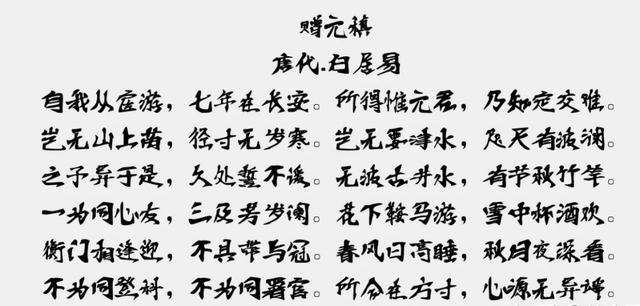 赠元稹
唐代.白居易
自我从宦游，七年在长安。所得惟元君，乃知定交难。
岂无山上苗，径寸无岁寒。岂无要津水，咫尺有波澜。
之子异于是，久处誓不谖。无波古井水，有节秋竹竿。
一为同心友，三及芳岁阑。花下鞍马游，雪中杯酒欢。
衡门相逢迎，不具带与冠。春风日高睡，秋月夜深看。
不为同登科，不为同署官。所合在方寸，心源无异端。